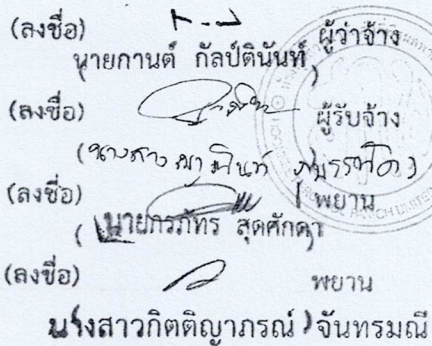 (ลงชื่อ) ผู้ว่าจ้าง
นายกานต์ กัลป์ตินันท์ )
(ลงชื่อ) ผู้รับจ้าง
(นางสาว )
(ลงชื่อ) พยาน
( นายกรภัทร สุดศักดา
(ลงชื่อ) พยาน
นางสาวกิตติญาภรณ์ ) จันทรมณี